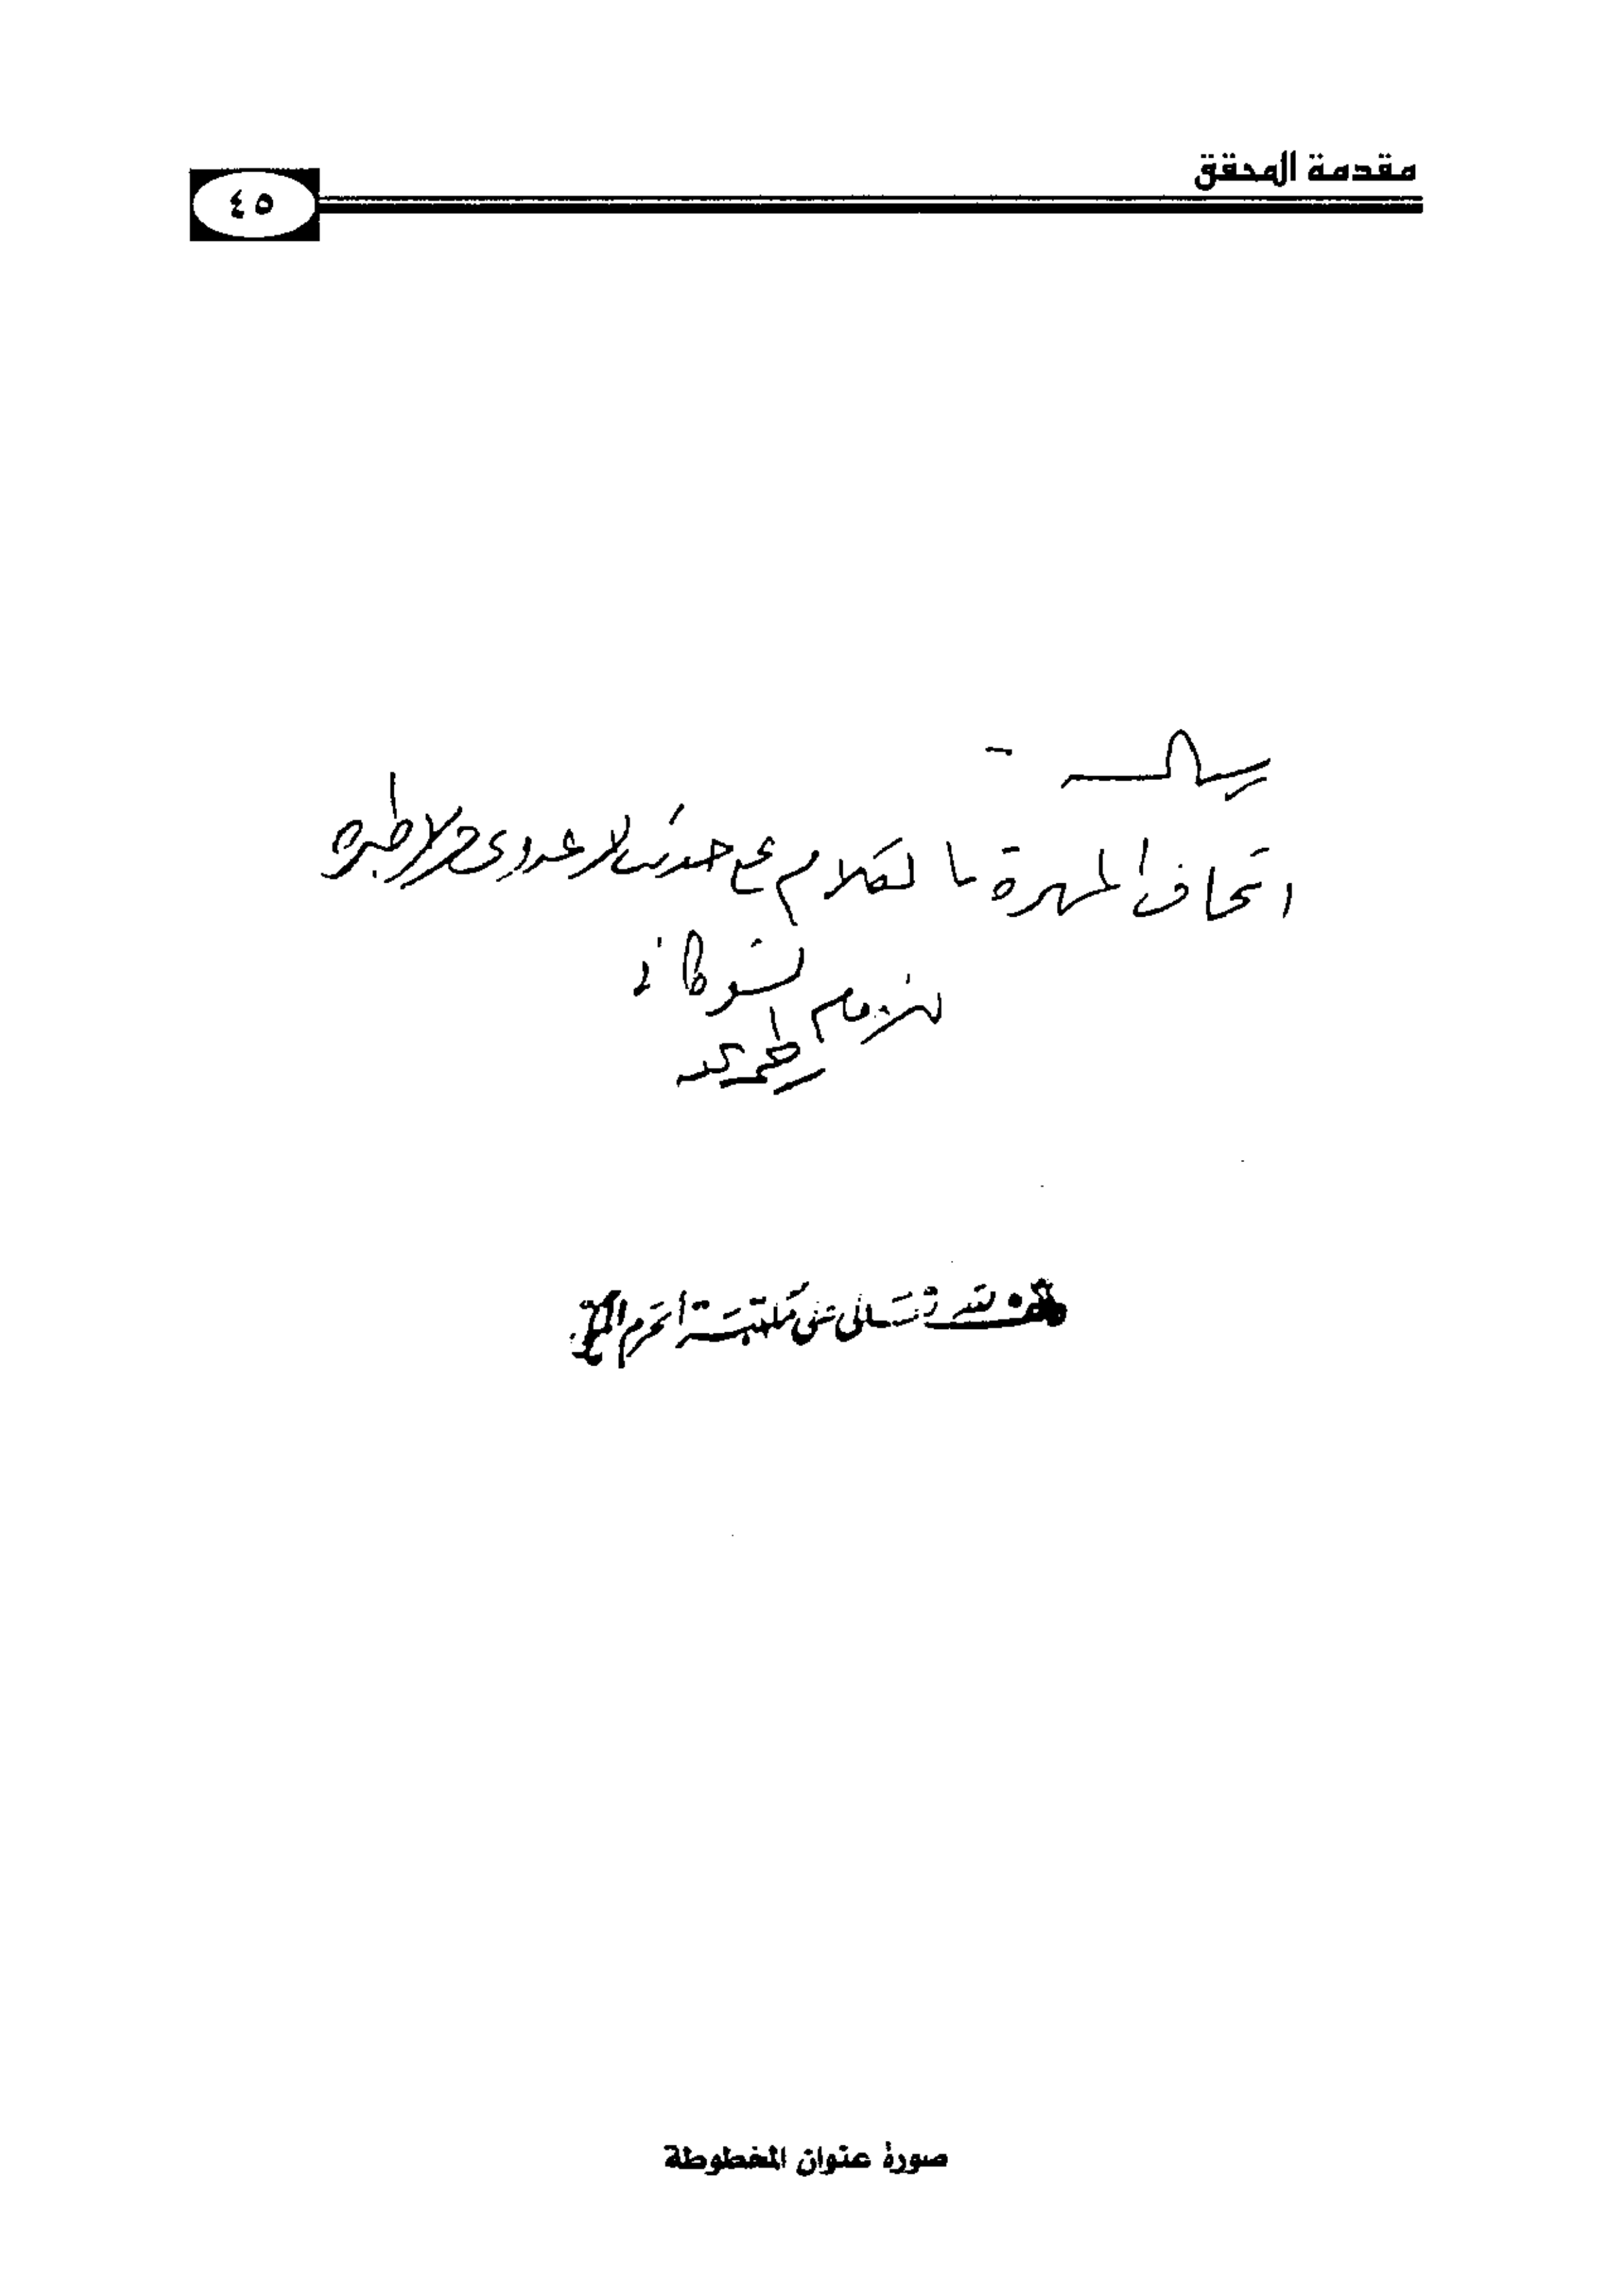 مقدمة المحقق
٤٥
رسالة
اتحاف المهرة بالكلام على حديث لا عدوى ولا طيرة
للإمام الشوكاني
رحمه الله
تعالى على مكتبة الحرم المكي
صورة عنوان المخطوطة